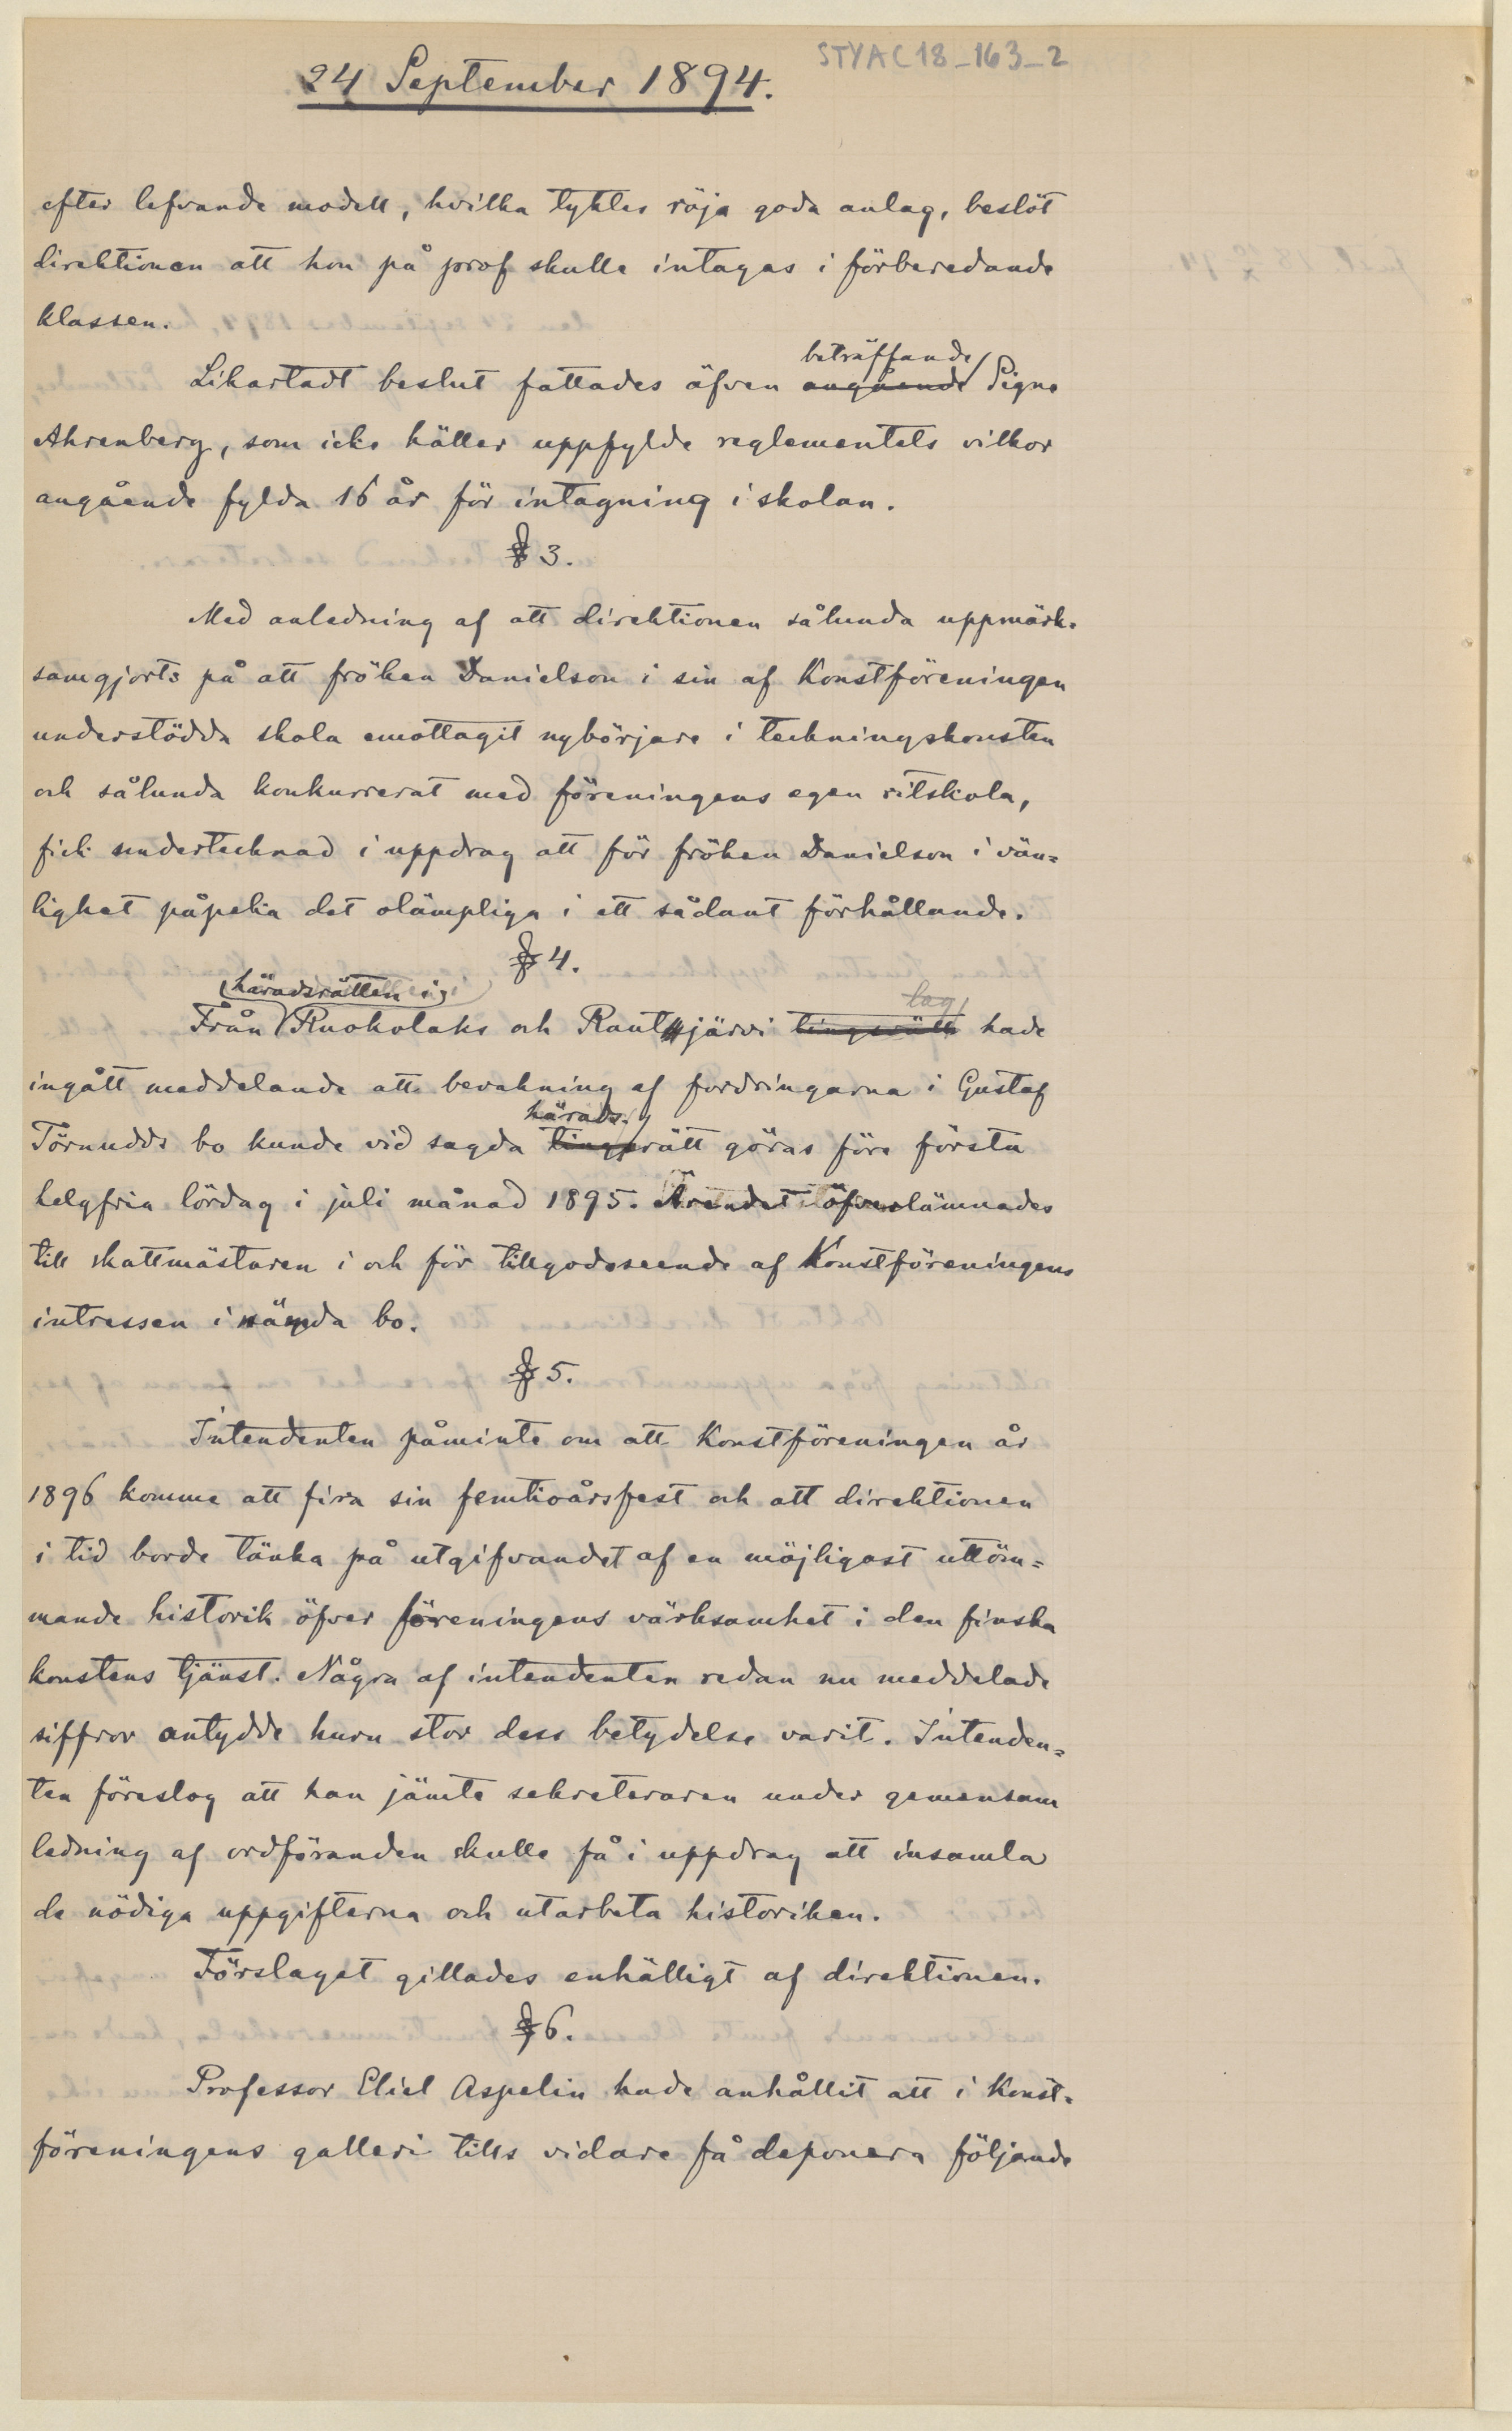 STYAC18_163_2
24 September 1894.
efter lefvande modell, hvilka tyktes röja goda anlag, beslöt
direktionen att hon på prof skulle intagas i förberedande
klassen.
beträffande
Likartadt beslut fattades äfven angående Signe
Ahrenberg, som icke häller uppfylde reglementets vilkor
angående fylda 16 år för intagning i skolan.
§ 3.
Med anledning af att direktionen sålunda uppmärk-
samgjorts på att fröken Danielson i sin af Konstföreningen
understödda skola emottagit nybörjare i teckningskonsten
och sålunda konkurrerat med föreningens egen ritskola,
fick undertecknad i uppdrag att för fröken Danielson i vän-
lighet påpeka det olämpliga i ett sådant förhållande.
§ 4.
häradsrätten i
lag
Från Ruokolaks och Rautjärvi tingsrätt hade
ingått meddelande att bevakning af fordringarna i Gustaf
härads-
Törnudds bo kunde vid sagda tingsrätt göras före första
helgfria lördag i juli månad 1895. Ärendet öfverlämnades
till skattmästaren i och för tillgodoseende af Konstföreningens
intressen i nämda bo.
§ 5.
Intendenten påminte om att Konstföreningen år
1896 komme att fira sin femtioårsfest och att direktionen
i tid borde tänka på utgifvandet af en möjligast uttöm-
mande historik öfver föreningens värksamhet i den finska
konstens tjänst. Några af intendenten redan nu meddelade
siffror antydde huru stor dess betydelse varit. Intenden-
ten föreslog att han jämte sekreteraren under gemensam
ledning af ordföranden skulle få i uppdrag att insamla
de nödiga uppgifterna och utarbeta historiken.
Förslaget gillades enhälligt af direktionen.
§ 6.
Professor Eliel Aspelin hade anhållit att i Konst-
föreningens galleri tills vidare få deponera följande